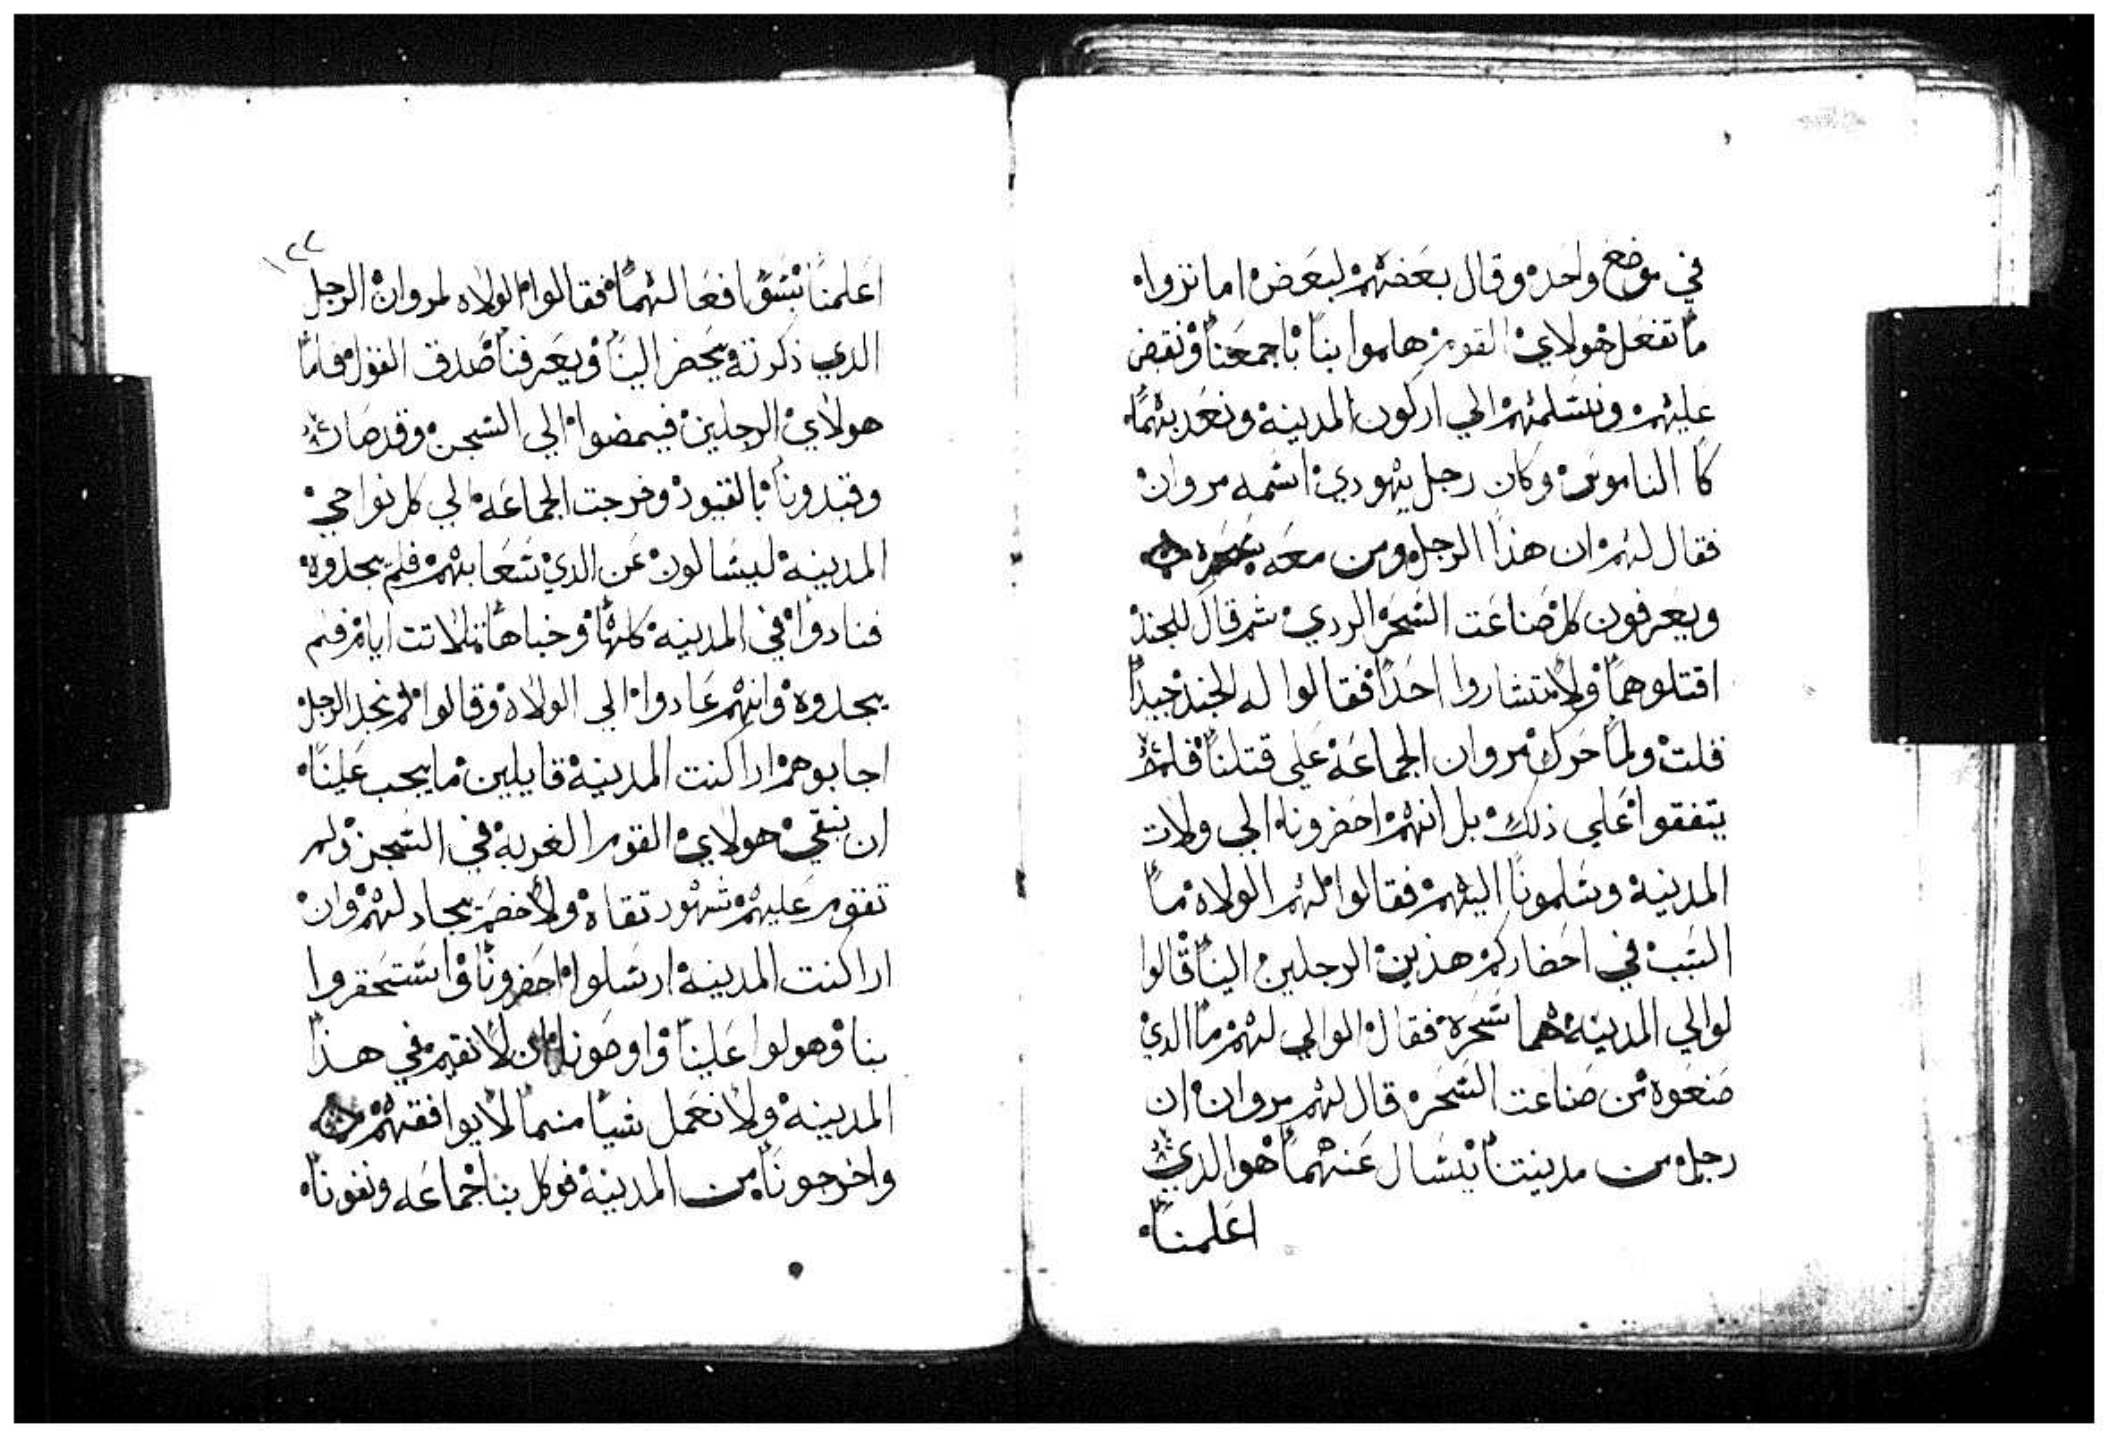 في موضع واحده وقال بعضهم لبعض اما نزوا
ما تفعل هولاي القوم هاموا بنا باجمعنا ونقبض
عليهم ونسلمهم الي اركون المدينة ونعد بهما
كا الناموس وكان رجل يهودي اسمه مروان
فقال لهم ان هذا الرجل ومن معه سحره
ويعرفون كل صناعت السحر الردي ثم قال للجند
اقتلوهما ولا تتشاروا احدا فقالوا له الجند جيدا
قلت ولما حرك مروان الجماعة علي قتلنا فلم
يتفقوا علي ذلك بل انهم احضرونا الي ولات
المدينة وسلمونا اليهم فقالوا لهم الولاه ما
السبب في احضاركم هذين الرجلين الينا قالوا
لوالي المدينة هما سحرة فقال الوالي لهم ما الدي
صنعوه من صناعت السحره قال لهم مروان ان
رجل من مدينتنا يتسال عنهما هوا الدي
اعلمنا
١٢٢
اعلمنا بسوا فعالهما فقالوا الولاه لمروان الرجل
الدي ذكرته يحضر الينا ويعرفنا صدق القول فاما
هولاي الرجلين فيمضوا الي السجن وقد صار
وقيدونا بالقيود وخرجت الجماعة الي كل نواحي
المدينة ليسالون عن الدي سعا بهم فلم يجدوه
فنادوا في المدينه كلها وخباها تلاتت ايام فلم
يجدوه وانهم عادوا الي الولاه وقالوا لم نجد الرجل
اجابوهم اراكنت المدينة قايلين ما يجب علينا
ان نبقي هولاي القوم الغربه في السجن ولم
تقوم عليهم شهود تقاه ولا خصم يجادلهم وان
اراكنت المدينة ارسلوا احضرونا واستحقروا
بنا وهولوا علينا واوصونا ان لا نقيم في هذا
المدينة ولا نعمل شيا منما لا يوافقهم
واخرجونا من المدينة فوكل بنا جماعه ونفونا